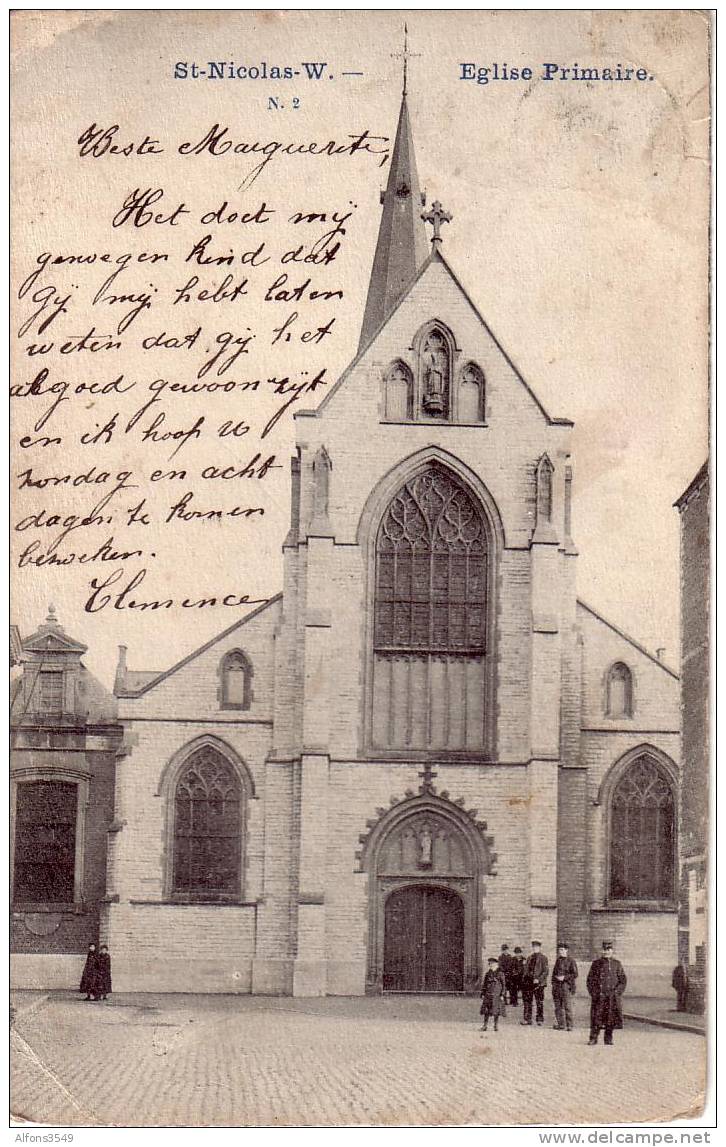 St-Nicolas-W. — Eglise Primaire.
N. 2
Beste Marguerite,
Het doet mij
genoegen kind dat
Gij mij hebt laten
weten dat gij het
algoed gewoon zijt
en ik hoop U
zondag en acht
dagen te komen
bezoeken.
Clemence
Alfons3549
www.delcampe.net